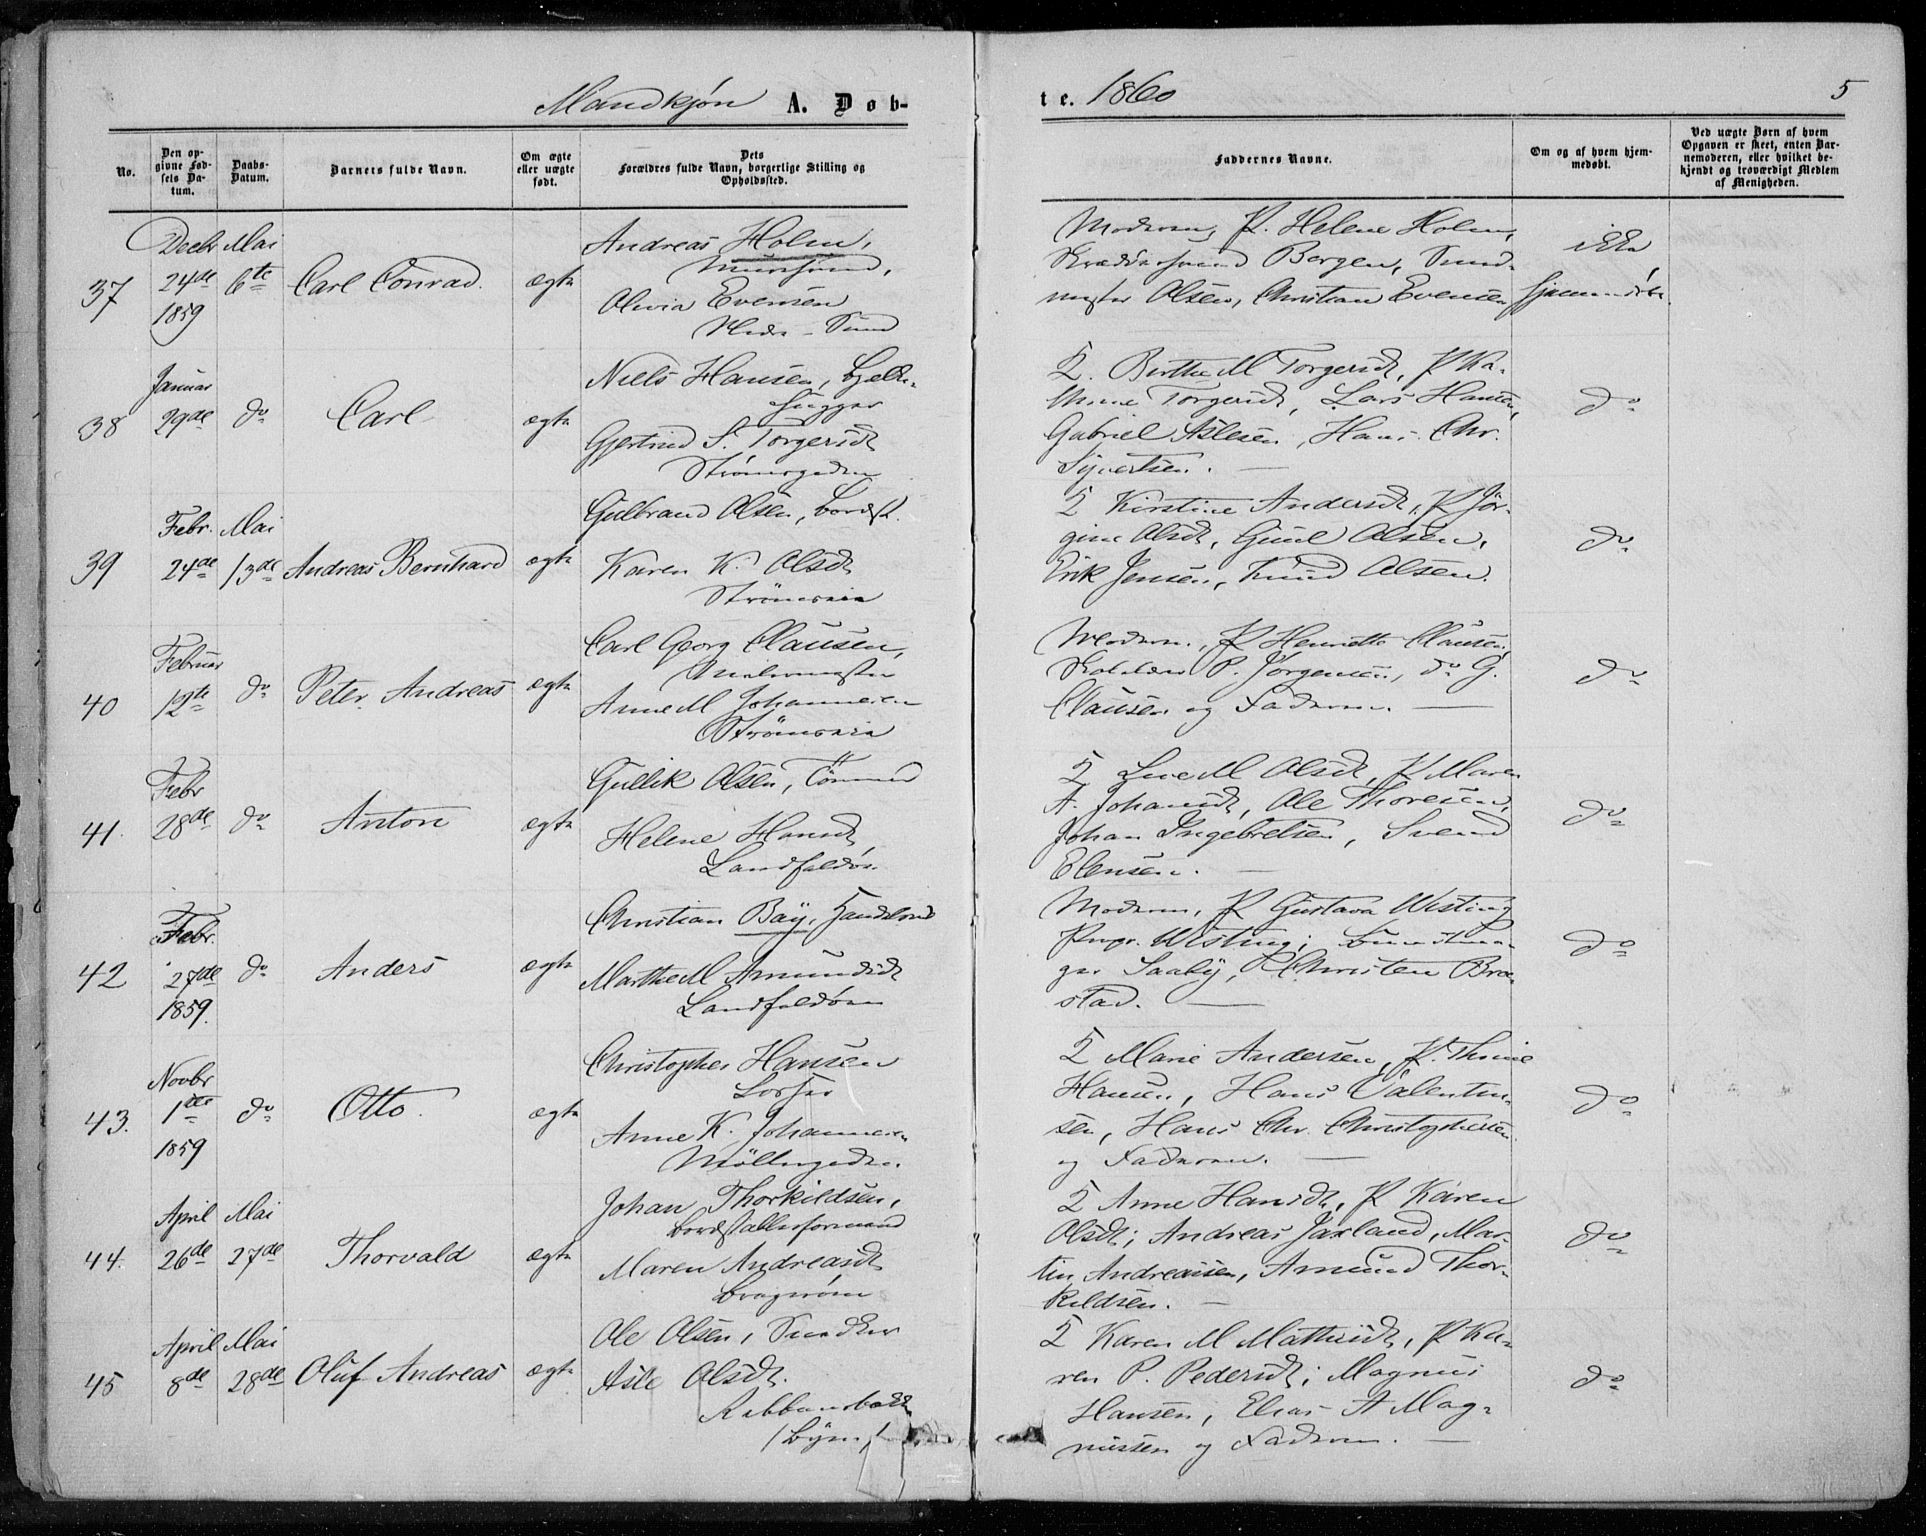 Mandkjøn A. Døb-
te. 1860
5
No.
Den op-
givne Fød-
sels Da-
tum.
Daabs-
Datum.
Barnets fulde Navn.
Om ægte
eller uægte
født.
Dets
Forældres fulde Navn, borgerlige Stilling og
Opholdssted.
Faddernes Navne.
Om og af hvem hjem-
medøbt.
Ved uægte Børn af hvem
Opgaven er skeet, enten Bar-
nemoderen, eller hvilket be-
kjendt og troværdigt Medlem
af Menigheden.
37
Decbr
24de
1859
Mai
6te
Carl Conrad.
ægte
Andreas Holm,
Muursvend,
Olivia Evensen
Sund
Moderen, P. Helene Holm,
Skræddersvend Bergen, Sund-
mester Olsen, Christian Evensen
ikke
hjemmedøbt
38
Januar
29de
do
Carl
ægte
Niels Hansen, Bjelke-
hugger
Gjertrud S. Torgersdt
Strømsgaden
2. Birthe M Torgersdt, P Ka-
thrine Torgersdt, Lars Hansen,
Gabriel Aslesen, Hans Chr.
Syvertsen.
do
39
Febr.
24de
Mai
13de
Andreas Bernhard
ægte
Gulbrand Olsen, Bordst
Karen K. Olsdt
Strømsøen
2 Kirstine Andersdt, P Jør-
gine Olsdt, Gunel Olsen,
Erik Jensen, Knud Olsen.
do
40
Februar
12te
do
Peter Andreas
ægte
Carl Georg Clausen,
Malermester
Anne M Johannesen
Strømsøen
Moderen, P Henriette Clausen,
P. Jørgensen, do G.
Clausen og Faderen.
do
41.
Febr
28de
do
Anton
ægte
Gullik Olsen, Tømmerm
Helene Hansdt
Landfaldøen
2 Lene M Olsdt, P Maren
A. Johansdt, Ole Thoresen,
Johan Ingebretsen, Svend
Elensen.
do
42
Febr.
27de
1859.
do
Anders
ægte
Christian Bay, Handelsmd
Marthe M Amundsdt
Landfaldøen
Moderen, P Gustava Westing
Pmgr. Westing,
ger Saaby, P. Christen Bra-
stad.
do
43.
Novbr
1ste
1859
do
Otto.
ægte
Christopher Hansen
Losser
Anne K. Johannesen
Møllergaden.
2 Marie Andersen, P. Thrine
Hansen, Hans Valentin-
sen, Hans Chr. Christophersen
og Faderen.
do
44.
April
26de
Mai
27de
Thorvald
ægte
Johan Thorkildsen,
Bordstablerformand
Maren Andreasdt
Bragernæs
2 Anne Hansdt, P Karen
Olsdt, Andreas Jarland, Mar-
tin Andreassen, Amund Thor-
kildsen.
do
45
April
8de
Mai
28de
Oluf Andreas
ægte
Ole Olsen, Snedker
Asle Olsdt.
Robbansbakk
/ Byen /
2 Karen M Mathisdt, P Ka-
ren P. Pedersdt, Magnus
Hansen, Elias A Mag-
nussen og Faderen.
do